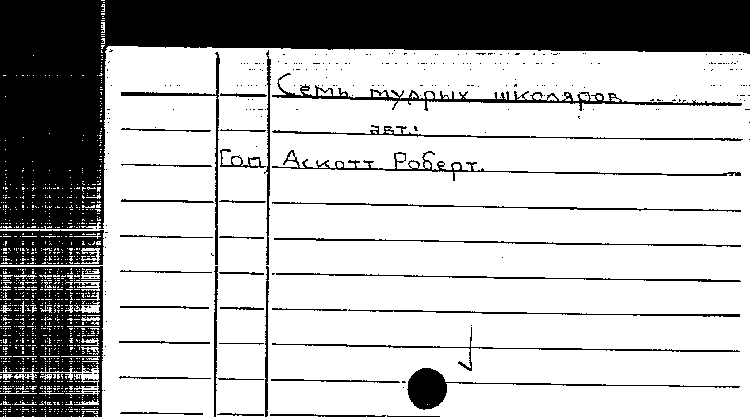 Семь мудрых школяров.
авт.:
Гол. Аскотт Роберт.